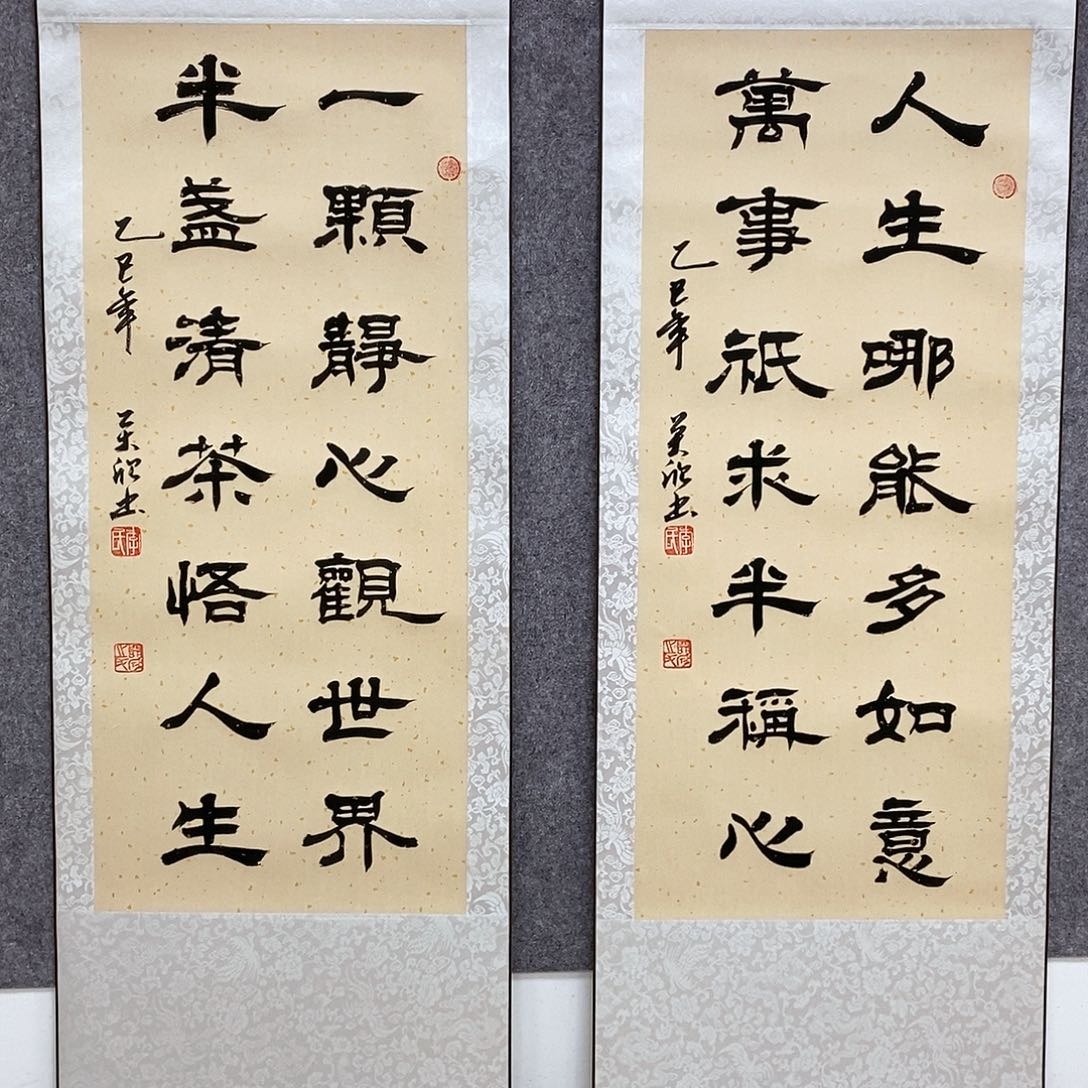 人生哪能多如意
萬事祇求半稱心
乙巳年
一顆靜心觀世界
半盞清茶悟人生
乙巳年